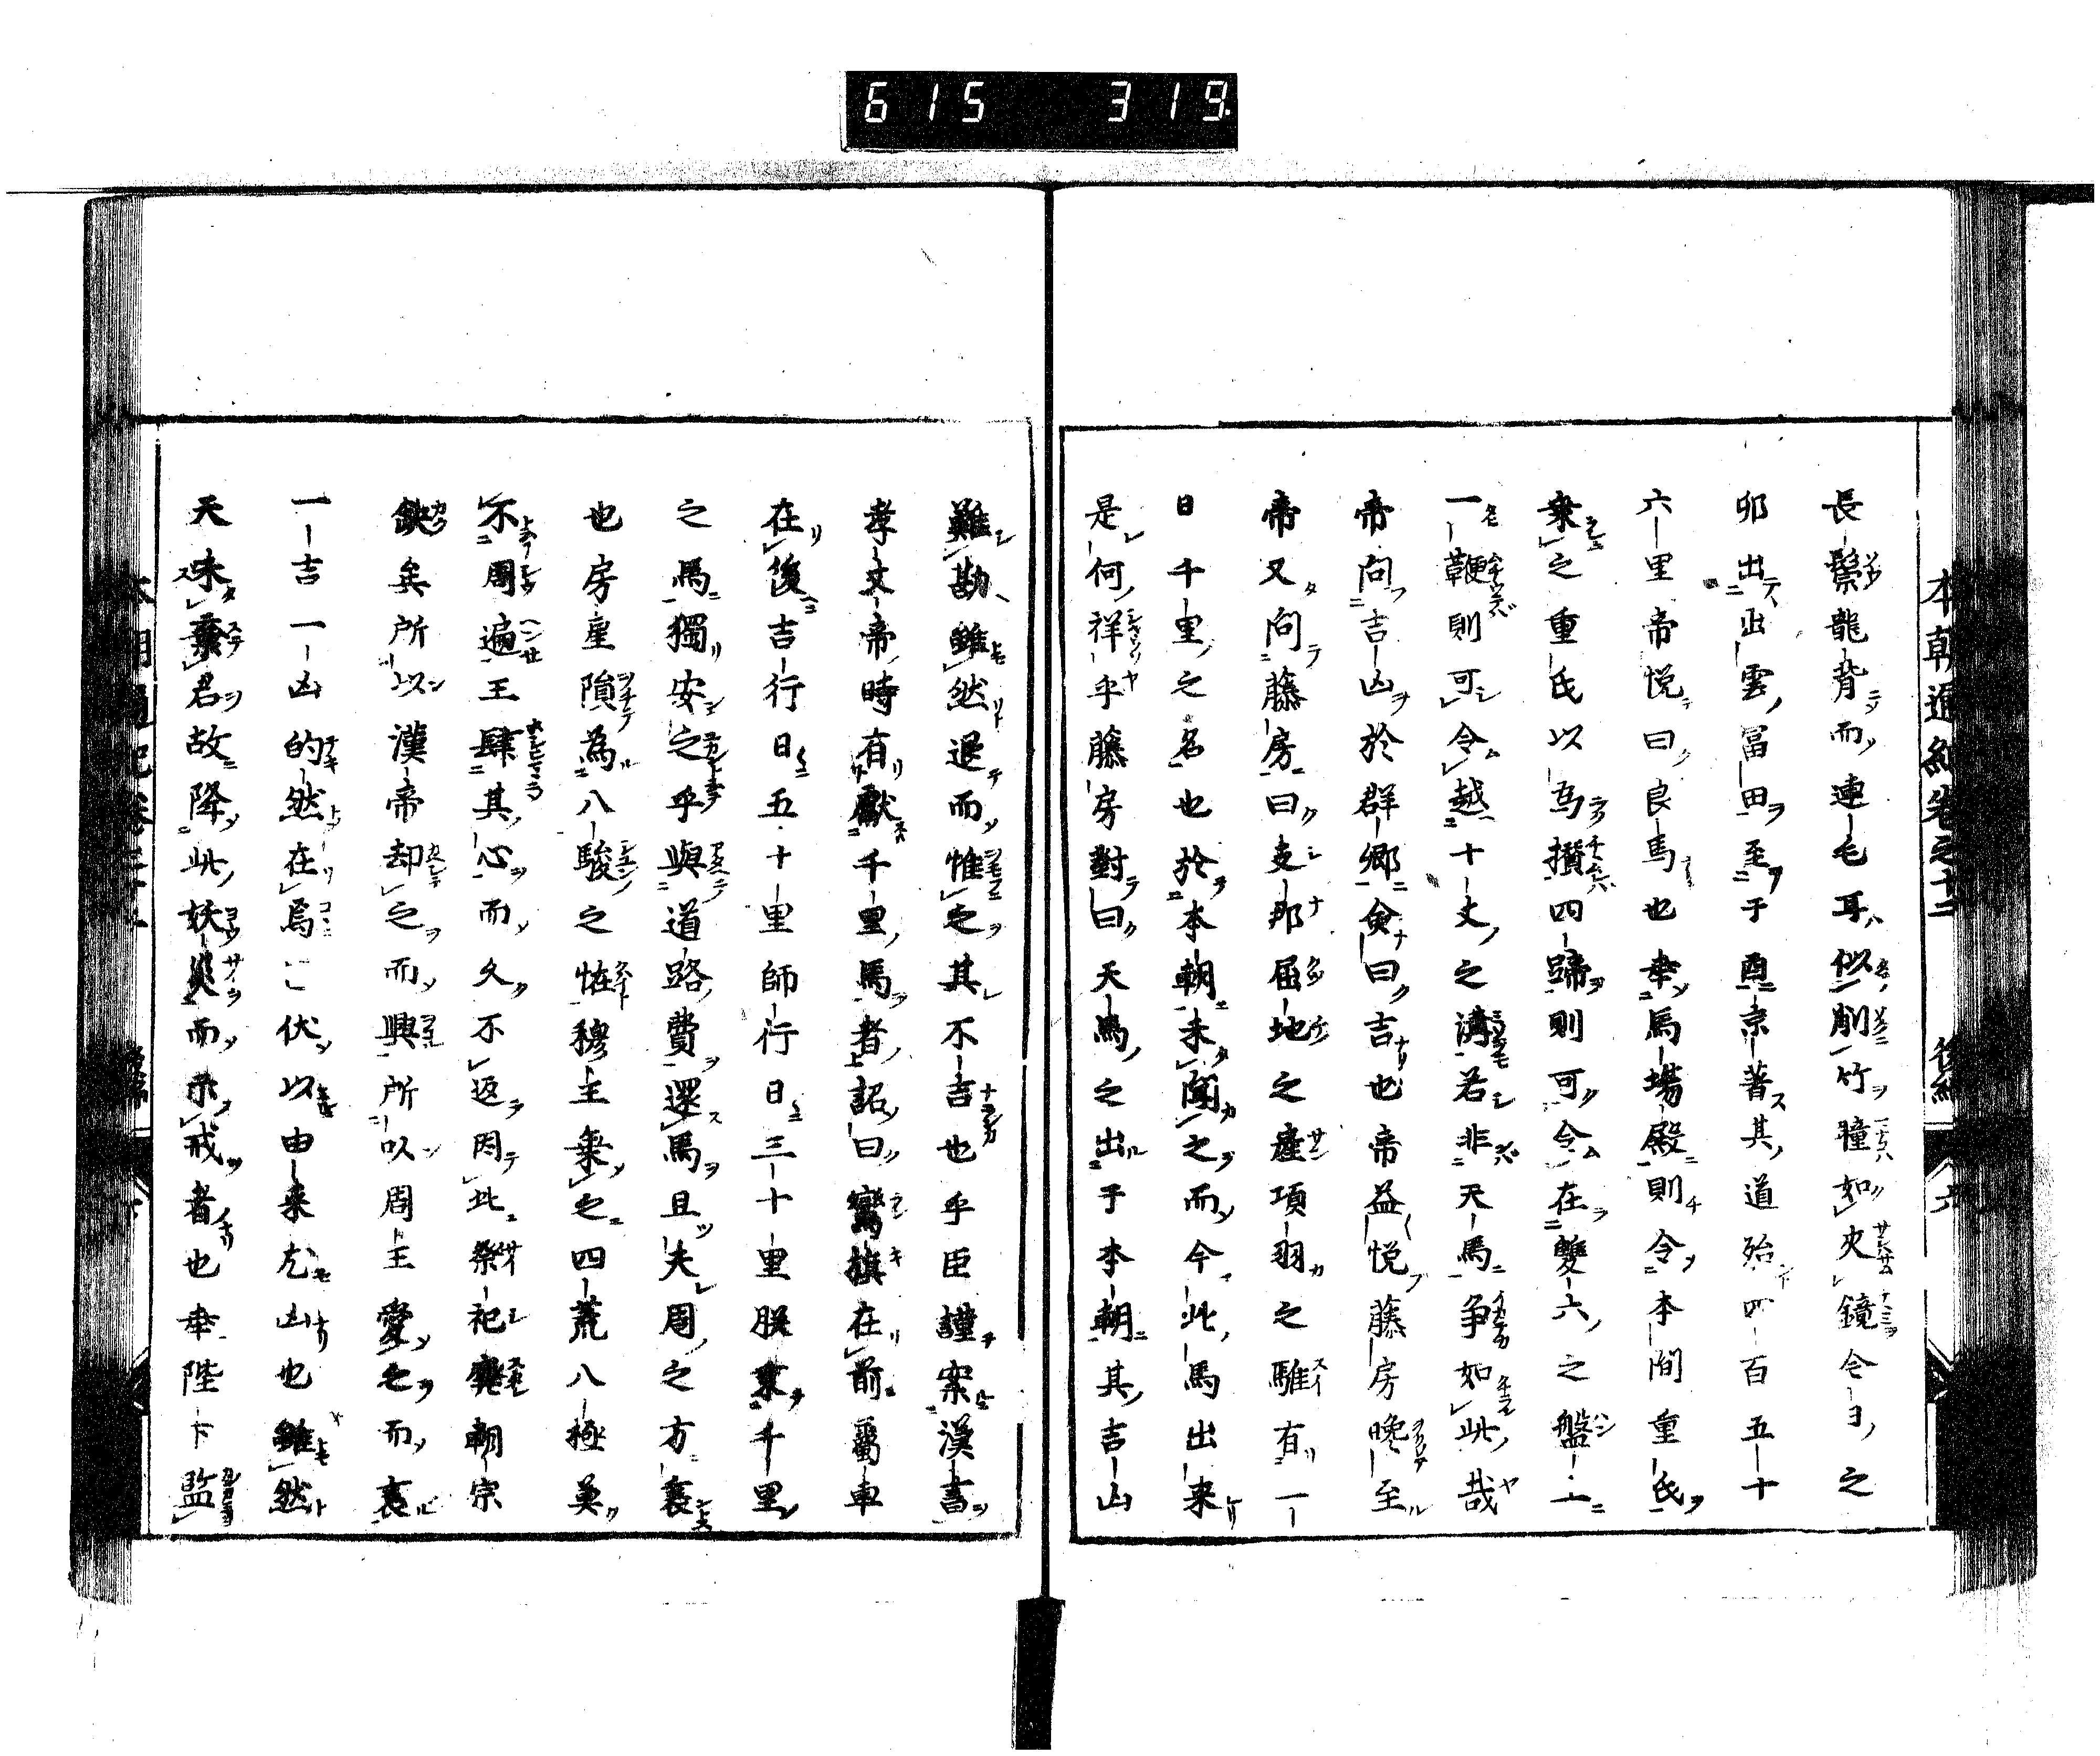 615 319
本朝通紀卷之十二 後編 六
長鬃龍背而連毛耳似削竹瞳如夾鏡今日之
卯出出雲冨田至于酉京著其道殆四百五十
六里帝悦曰良馬也幸馬場殿則令本間重氏
乗之重氏以為攅四蹄則可令在雙六之盤上
一鞭則可令越十丈之溝若非天馬争如此哉
帝問吉凶於群郷僉曰吉也帝益悦藤房晩至
帝又問藤房曰支那屈地之産項羽之騅有一
日千里之名也於本朝未聞之而今此馬出来
是何祥乎藤房對曰天馬之出于本朝其吉凶
難勘雖然退而惟之其不吉也乎臣謹案漢書
孝文帝時有獻千里馬者詔曰鸞旗在前屬車
在後吉行日五十里師行日三十里朕乗千里
之馬獨安之乎與道路費還馬且夫周之方衰
也房星隕為八駿之恠穆王乗之四荒八極莫
不周遍王肆其心而久不返因此祭祀廢朝宗
缺矣所以漢帝却之而興所以周王愛之而衰
一吉一凶的然在焉仁伏以由来尤凶也雖然
天未棄君故降此妖災而示戒者也幸陛下監